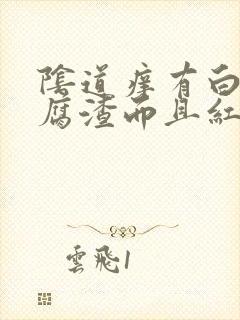 陰道癢有白
腐渣而且紅
雲飛1